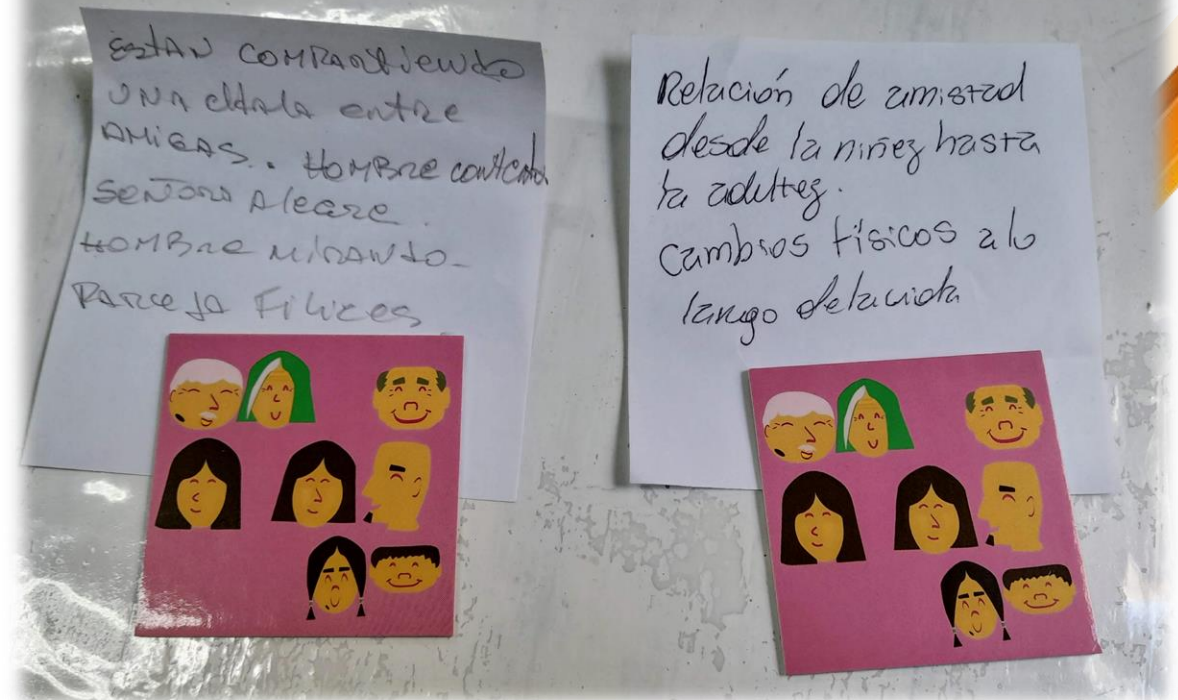 EstAN COMPARtiENdo
UNA cHARLA entre
AMiGAS.. HOMBRE contento
SEÑORA AleGRE.
HOMBRE MIRANdo-
PAREJA Filices
Relación de amistad
desde la niñez hasta
la adultez.
Cambios físicos a lo
largo de la vida